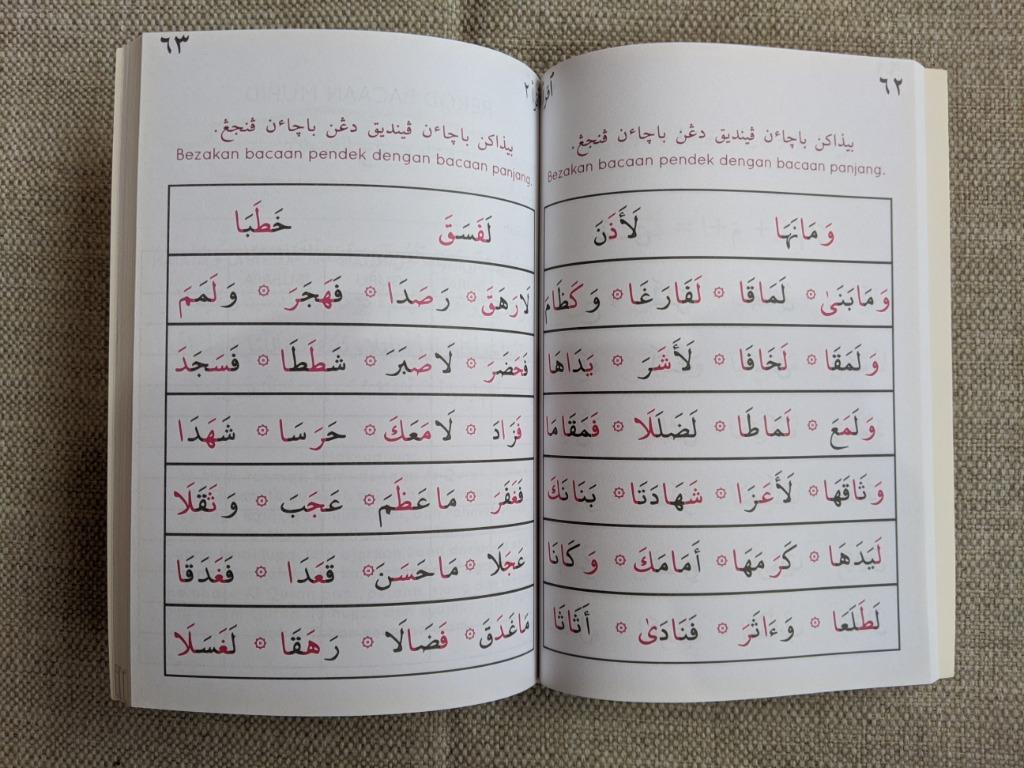 ٦٢
بيذاکن باچاءن ڤينديق دڠن باچاءن ڤنجڠ.
Bezakan bacaan pendek dengan bacaan panjang.
وَمَانَهَا لَأَذَنَ
وَمَابَنَىٰ ۞ لَمَاقَا ۞ لَفَارَغَا ۞ وَكَظَامَ
وَلَمَقَا ۞ لَخَافَا ۞ لَأَشَرَ ۞ يَدَاهَا
وَلَمَعَ ۞ لَمَاطَا ۞ لَضَلَلَا ۞ فَمَقَامَا
وَثَاقَهَا ۞ لَأَعَزَا ۞ شَهَادَتَا ۞ بَنَانَكَ
لَيَدَهَا ۞ كَرَمَهَا ۞ أَمَامَكَ ۞ وَكَانَا
لَطَلَعَا ۞ وَءَاثَرَ ۞ فَنَادَىٰ ۞ أَثَاثَا
٦٣
اقرأ ٢
بيذاکن باچاءن ڤينديق دڠن باچاءن ڤنجڠ.
Bezakan bacaan pendek dengan bacaan panjang.
لَفَسَقَ خَطَبَا
لَارَهَقَ ۞ رَصَدَا ۞ فَهَجَرَ ۞ وَلَمَمَ
فَحَضَرَ ۞ لَاصَبَرَ ۞ شَطَطَا ۞ فَسَجَدَ
فَزَادَ ۞ لَامَعَكَ ۞ حَرَسَا ۞ شَهَدَا
فَغَفَرَ ۞ مَاعَظَمَ ۞ عَجَبَ ۞ وَثَقَلَا
عَجَلَا ۞ مَاحَسَنَ ۞ قَعَدَا ۞ فَغَدَقَا
مَاغَدَقَ ۞ فَضَالَا ۞ رَهَقَا ۞ لَغَسَلَا